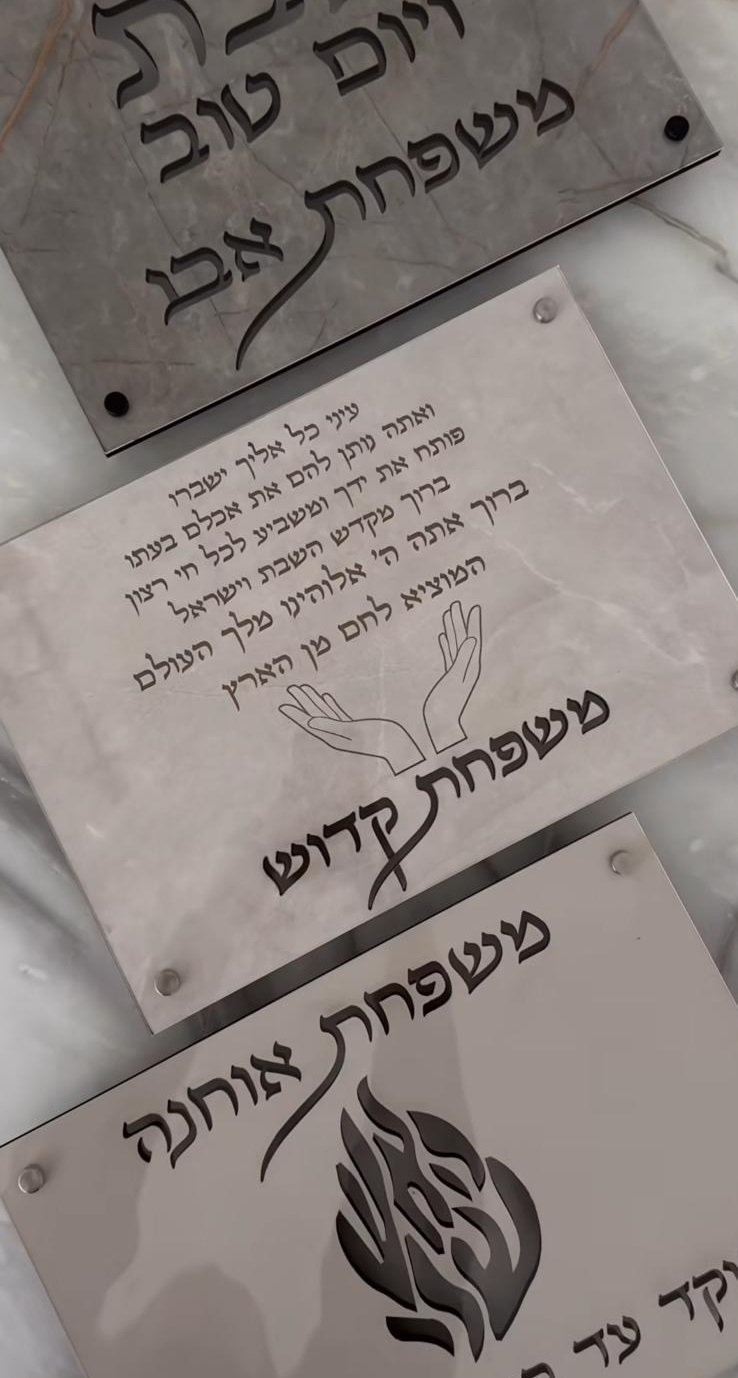 ויום טוב
משפחת אבו
עיני כל אליך ישברו
ואתה נותן להם את אכלם בעתו
פותח את ידך ומשביע לכל חי רצון
ברוך מקדש השבת וישראל
ברוך אתה ה' אלוהינו מלך העולם
המוציא לחם מן הארץ
משפחת קדוש
משפחת אוחנה
עד